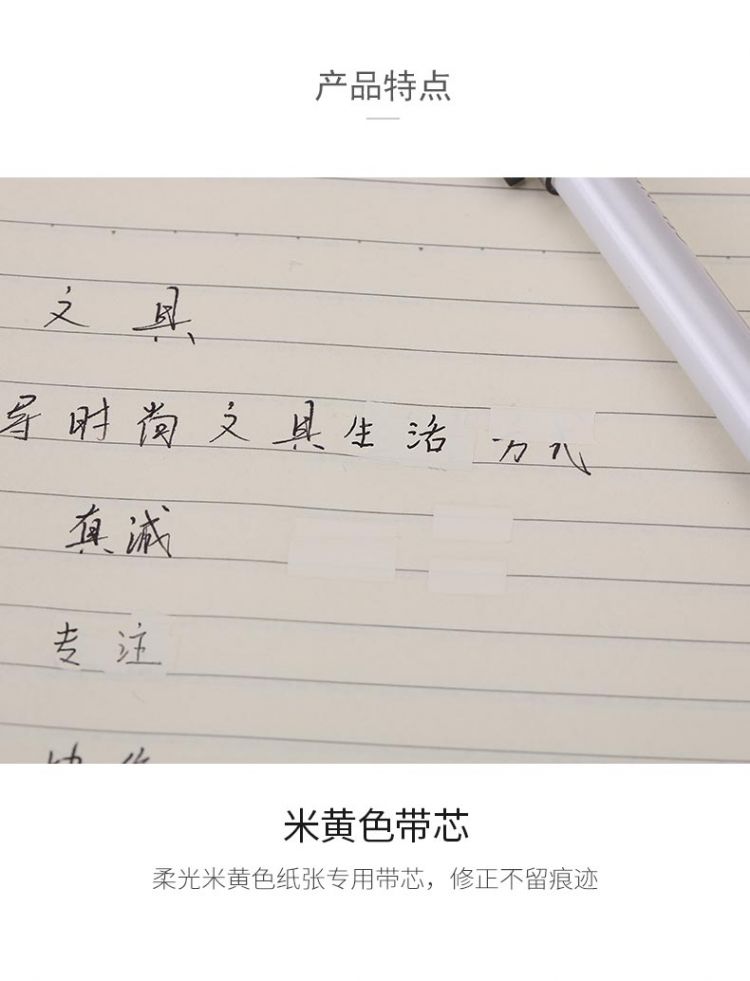 产品特点
文具
导时尚文具生活方式
真诚
专注
米黄色带芯
柔光米黄色纸张专用带芯，修正不留痕迹